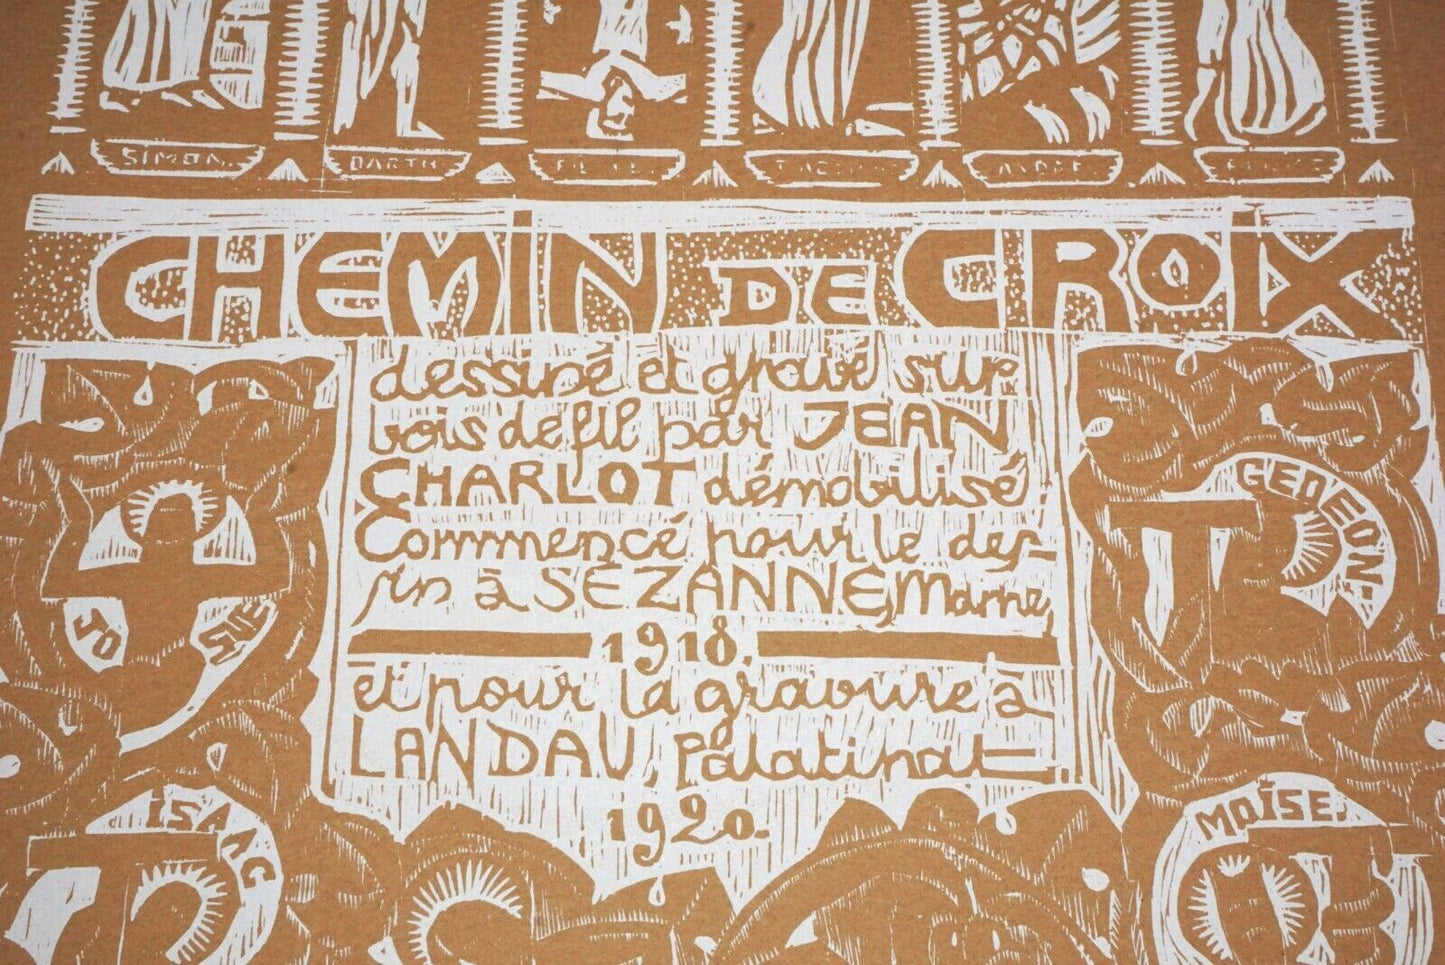 SIMON.
BARTH
ANDRE
CHEMIN DE CROIX
dessiné et gravé sur
bois de fil par JEAN
CHARLOT démobilisé.
Commencé pour le des-
sin à SÉZANNE, Marne
1918.
et pour la gravure à
LANDAU, Palatinat
1920.
JO
SUE
GEDEON.
ISAAC
MOÏSE.